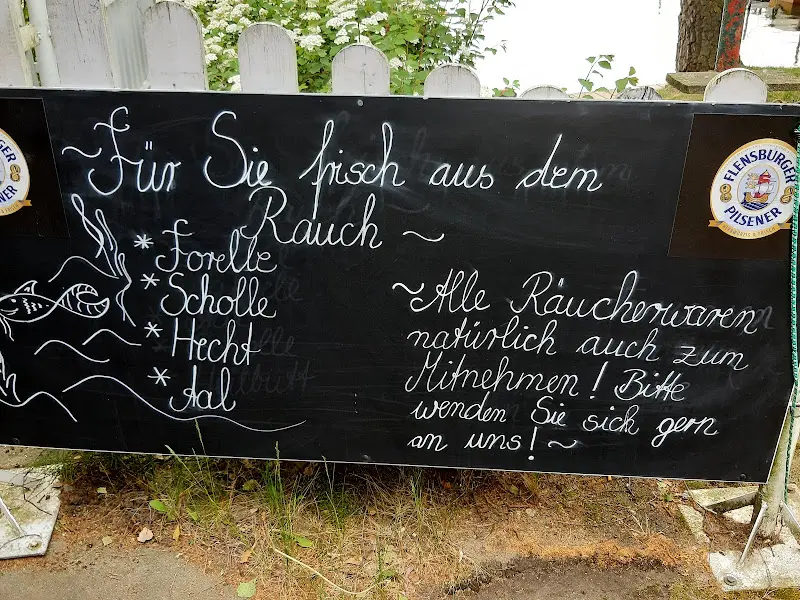 ~ Für Sie frisch aus dem
Rauch ~
* Forelle
* Scholle
* Hecht
* Aal
~ Alle Räucherwaren
natürlich auch zum
Mitnehmen! Bitte
wenden Sie sich gern
an uns! ~
FLENSBURGER
PILSENER